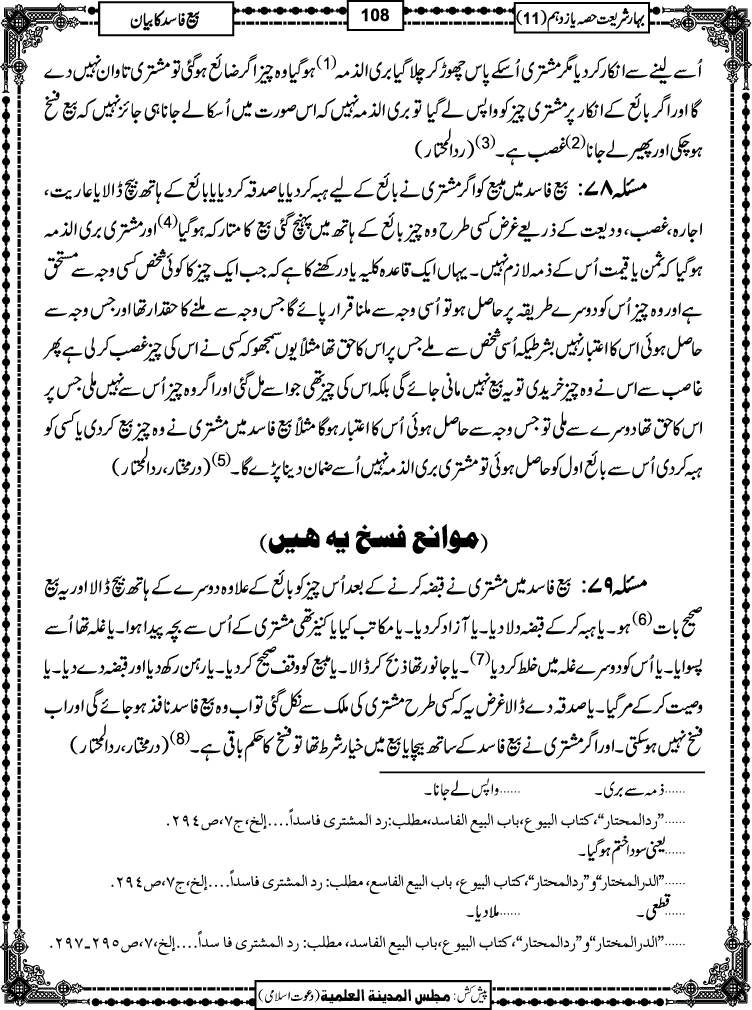 بہارِ شریعت حصہ یازدہم (11)
108
بیع فاسد کا بیان
اُسے لینے سے انکار کر دیا مگر مشتری اُسکے پاس چھوڑ کر چلا گیا بری الذمہ (1) ہو گیا وہ چیز اگر ضائع ہو گئی تو مشتری تاوان نہیں دے
گا اور اگر بائع کے انکار پر مشتری چیز کو واپس لے گیا تو بری الذمہ نہیں کہ اس صورت میں اُسکا لے جانا ہی جائز نہیں کہ بیع فسخ
ہو چکی اور پھیر لے جانا (2) غصب ہے۔ (3) (ردالمحتار)
مسئلہ ۷۸: بیع فاسد میں مبیع کو اگر مشتری نے بائع کے لیے ہبہ کر دیا یا صدقہ کر دیا یا بائع کے ہاتھ بیچ ڈالا یا عاریت،
اجارہ، غصب، ودیعت کے ذریعے غرض کسی طرح وہ چیز بائع کے ہاتھ میں پہنچ گئی بیع کا متارکہ ہو گیا (4) اور مشتری بری الذمہ
ہو گیا کہ ثمن یا قیمت اُس کے ذمہ لازم نہیں۔ یہاں ایک قاعدہ کلیہ یاد رکھنے کا ہے کہ جب ایک چیز کا کوئی شخص کسی وجہ سے مستحق
ہے اور وہ چیز اُس کو دوسرے طریقہ پر حاصل ہو تو اُسی وجہ سے ملنا قرار پائے گا جس وجہ سے ملنے کا حقدار تھا اور جس وجہ سے
حاصل ہوئی اس کا اعتبار نہیں بشرطیکہ اُسی شخص سے ملے جس پر اس کا حق تھا مثلاً یوں سمجھو کہ کسی نے اس کی چیز غصب کر لی ہے پھر
غاصب سے اس نے وہ چیز خریدی تو یہ بیع نہیں مانی جائے گی بلکہ اس کی چیز تھی جو اسے مل گئی اور اگر وہ چیز اُس سے نہیں ملی جس پر
اس کا حق تھا دوسرے سے ملی تو جس وجہ سے حاصل ہوئی اُس کا اعتبار ہو گا مثلاً بیع فاسد میں مشتری نے وہ چیز بیع کر دی یا کسی کو
ہبہ کر دی اُس سے بائع اول کو حاصل ہوئی تو مشتری بری الذمہ نہیں اُسے ضمان دینا پڑے گا۔ (5) (درمختار، ردالمحتار)
(موانع فسخ یہ ھیں)
مسئلہ ۷۹: بیع فاسد میں مشتری نے قبضہ کرنے کے بعد اُس چیز کو بائع کے علاوہ دوسرے کے ہاتھ بیچ ڈالا اور یہ بیع
صحیح بات (6) ہو۔ یا ہبہ کر کے قبضہ دلا دیا۔ یا آزاد کر دیا۔ یا مکاتب کیا یا کنیز تھی مشتری کے اُس سے بچہ پیدا ہوا۔ یا غلہ تھا اُسے
پسوایا۔ یا اُس کو دوسرے غلہ میں خلط کر دیا (7)۔ یا جانور تھا ذبح کر ڈالا۔ یا مبیع کو وقف صحیح کر دیا۔ یا رہن رکھ دیا اور قبضہ دے دیا۔ یا
وصیت کر کے مر گیا۔ یا صدقہ دے ڈالا غرض یہ کہ کسی طرح مشتری کی ملک سے نکل گئی تو اب وہ بیع فاسد نافذ ہو جائے گی اور اب
فسخ نہیں ہو سکتی۔ اور اگر مشتری نے بیع فاسد کے ساتھ بیچا یا بیع میں خیار شرط تھا تو فسخ کا حکم باقی ہے۔ (8) (درمختار، ردالمحتار)
......ذمہ سے بری۔ ......واپس لے جانا۔
......"ردالمحتار"، کتاب البیوع، باب البیع الفاسد، مطلب: رد المشتری فاسداً....إلخ، ج۷، ص۲۹٤.
......یعنی سودا ختم ہو گیا۔
......"الدرالمختار" و"ردالمحتار"، کتاب البیوع، باب البیع الفاسع، مطلب: رد المشتری فاسداً....إلخ، ج۷، ص۲۹٤.
......قطعی۔ ......ملا دیا۔
......"الدرالمختار" و"ردالمحتار"، کتاب البیوع، باب البیع الفاسد، مطلب: رد المشتری فا سداً....إلخ، ۷، ص۲۹٥ـ۲۹۷.
پیش کش: مجلس المدینة العلمیة (دعوتِ اسلامی)